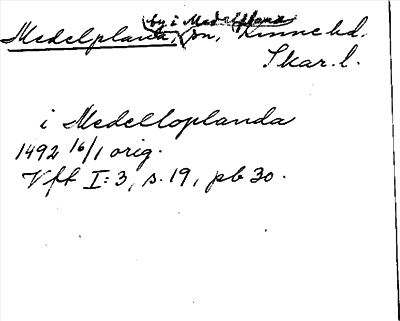 by i Medelplana
Medelplana, sn, Kinne hd.
Skar. l.
i Medelloplanda
1492 16/1 orig.
Vft I:3, s. 19, pb 30.